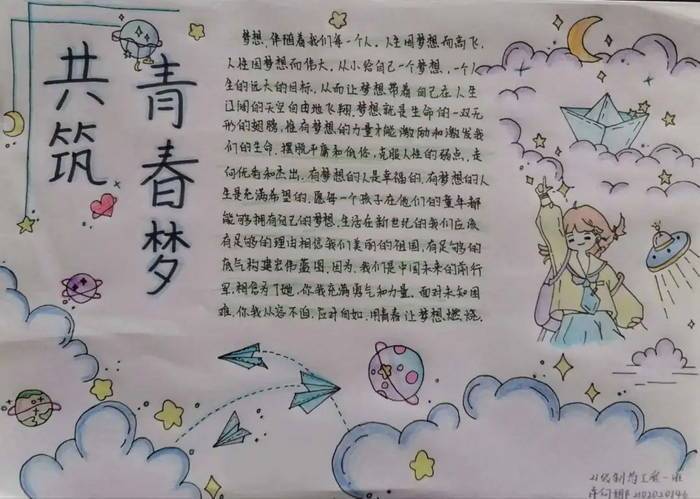 共筑
青春梦
梦想,伴随着我们每一个人。人生因梦想而高飞,
人性因梦想而伟大。从小给自己一个梦想,一个人
生的远大的目标,从而让梦想带着自己在人生
辽阔的天空自由地飞翔。梦想就是生命的一双无
形的翅膀,惟有梦想的力量才能激励和激发我
们的生命,摆脱平庸和低俗,克服人性的弱点,走
向优秀和杰出。有梦想的人是幸福的,有梦想的人
生是充满希望的。愿每一个孩子在他们的童年都
能够拥有自己的梦想。生活在新世纪的我们应该
有足够的理由相信我们美丽的祖国,有足够的
底气构建宏伟蓝图。因为,我们是中国未来的前行
军,相信为了她,你我充满勇气和力量。面对未知困
难,你我从容不迫,应对自如,用青春让梦想燃烧。